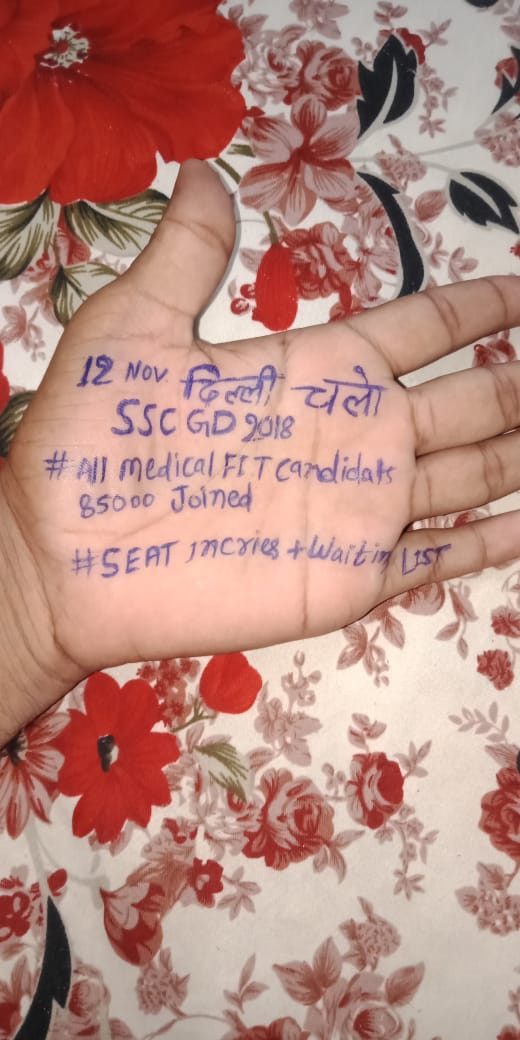 12 Nov. दिल्ली चलो
SSC GD 2018
# All medical FIT candidats
85000 Joined
#SEAT incries + Waitin LIST